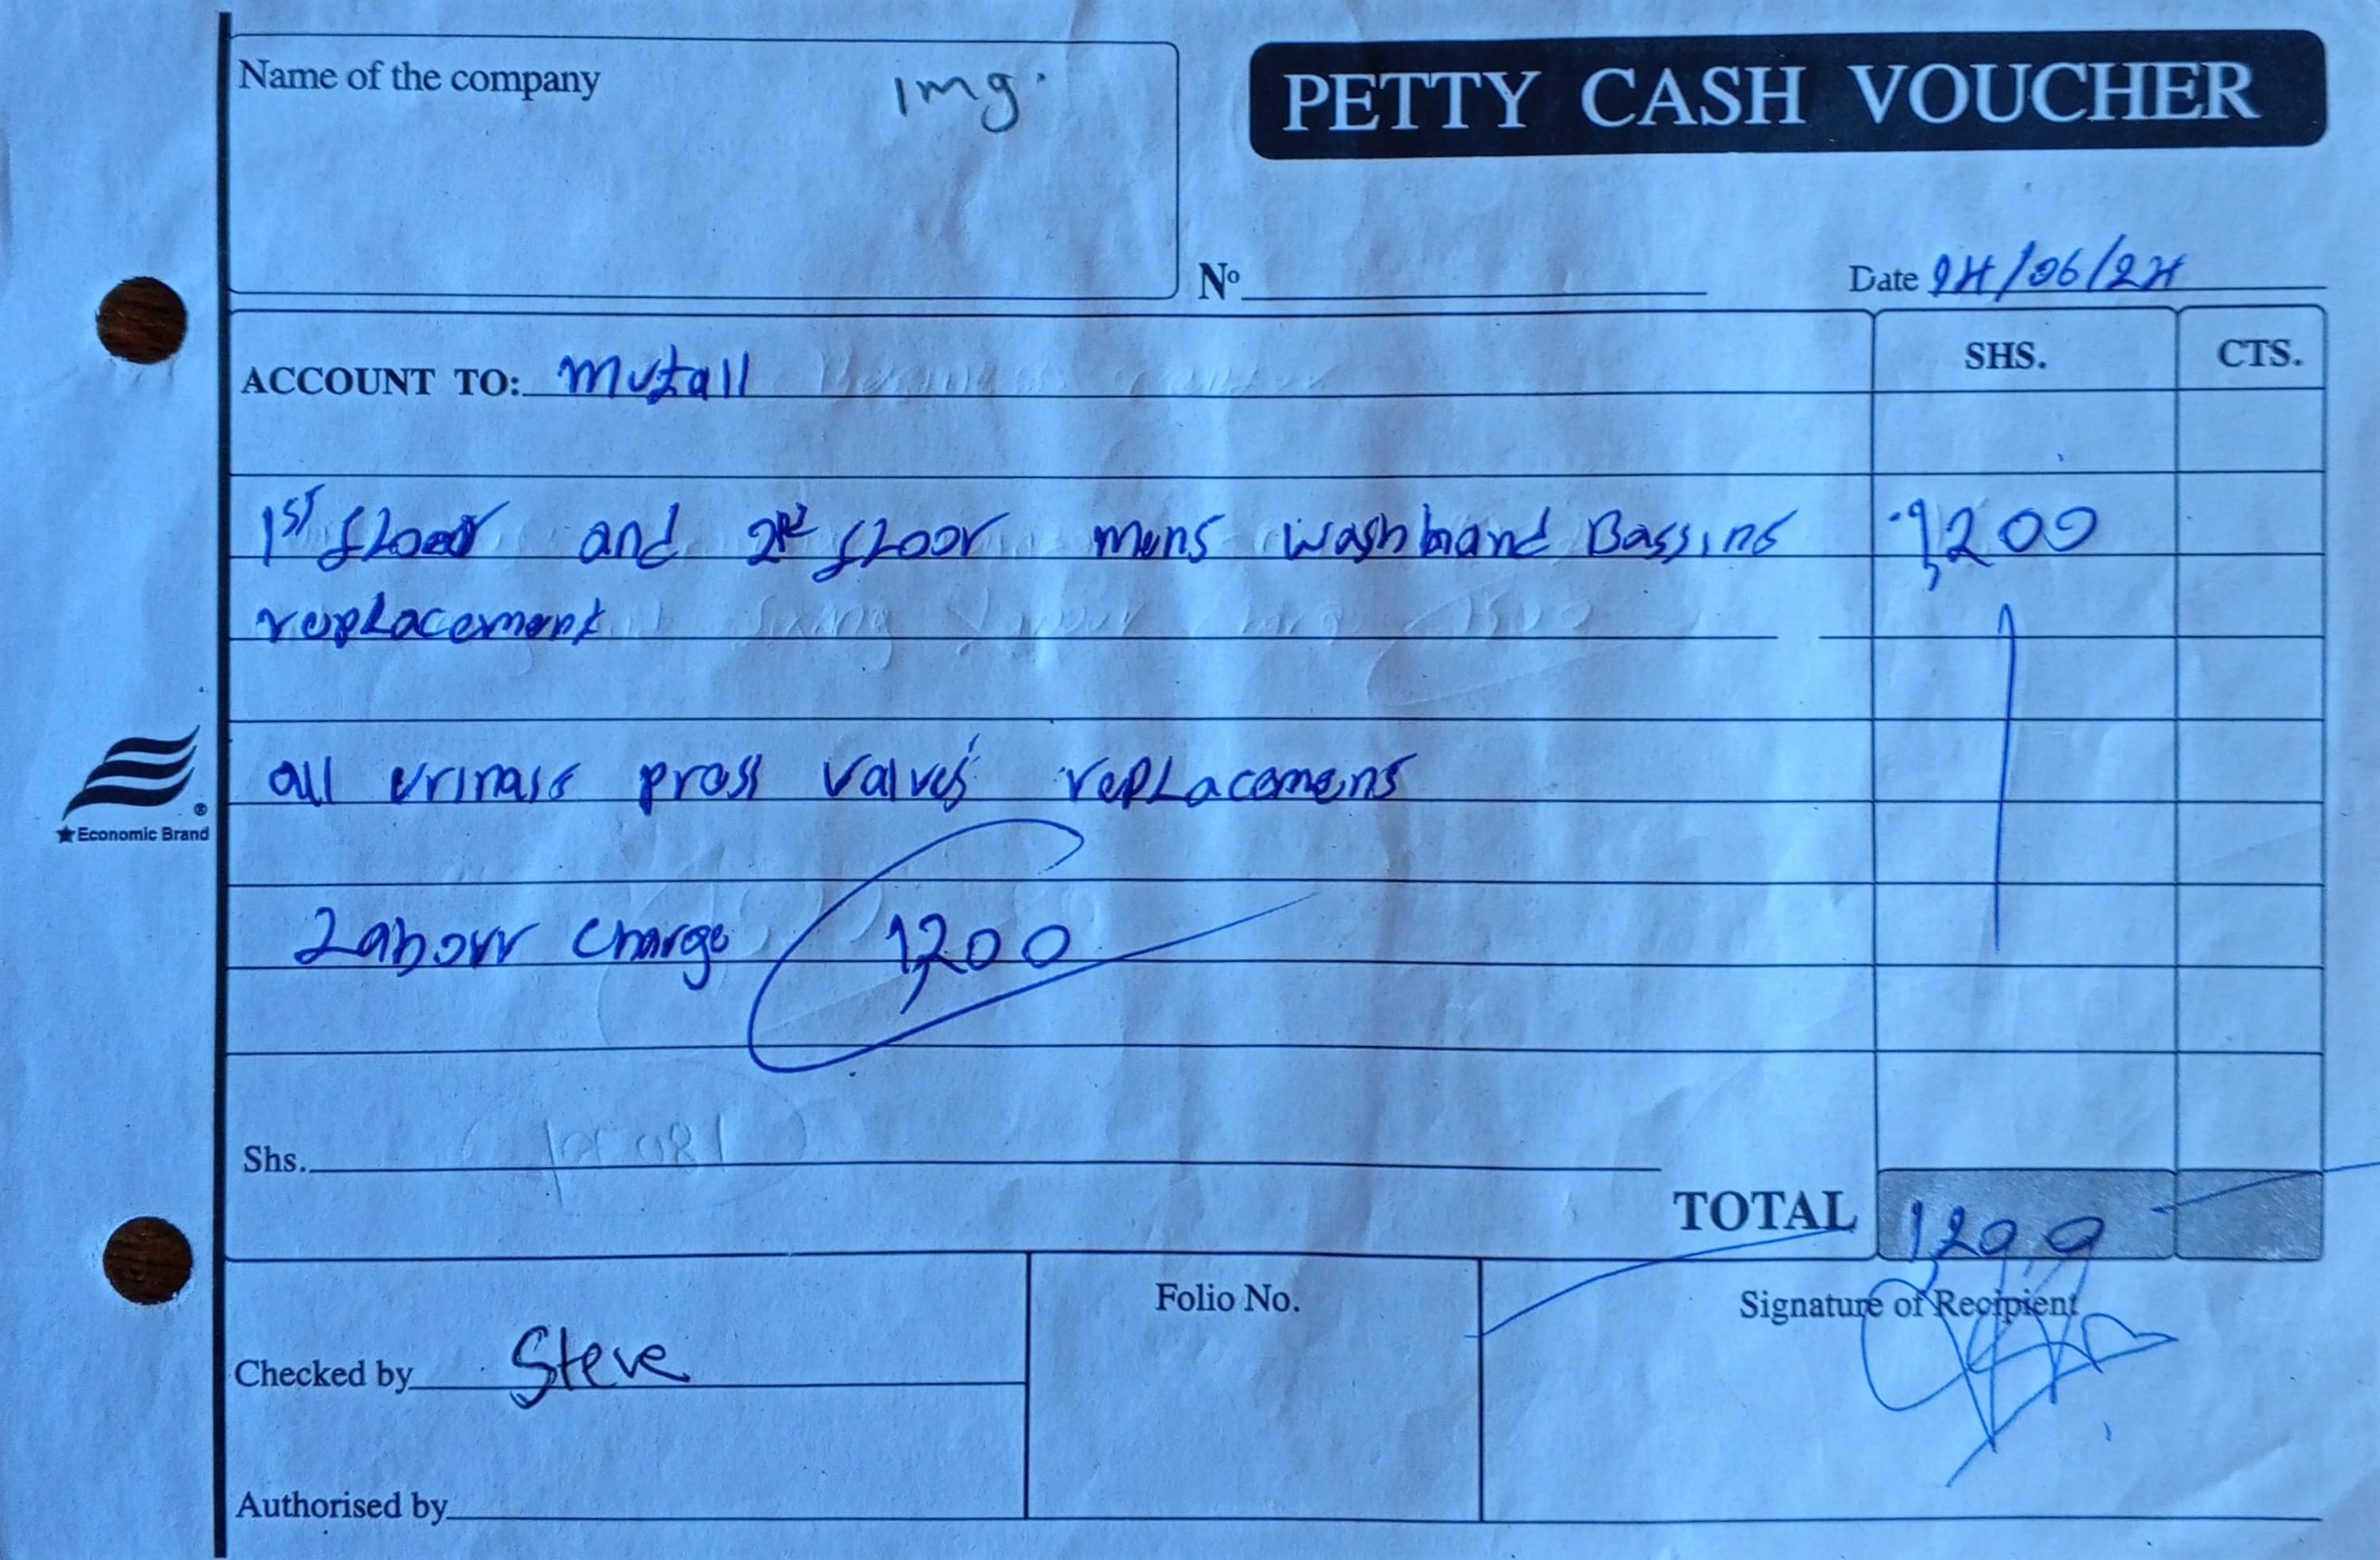 Name of the company
1mg.
PETTY CASH VOUCHER
Nº
Date 24/06/24
ACCOUNT TO: mutall
SHS.
CTS.
1st floor and 2nd floor mens wash hand Bassins 1,200
replacement
all urinals press valves replacemens
® 
★Economic Brand
Labour charge 1,200
Shs.
TOTAL 1,200
Checked by Steve
Folio No.
Signature of Recipient
Authorised by